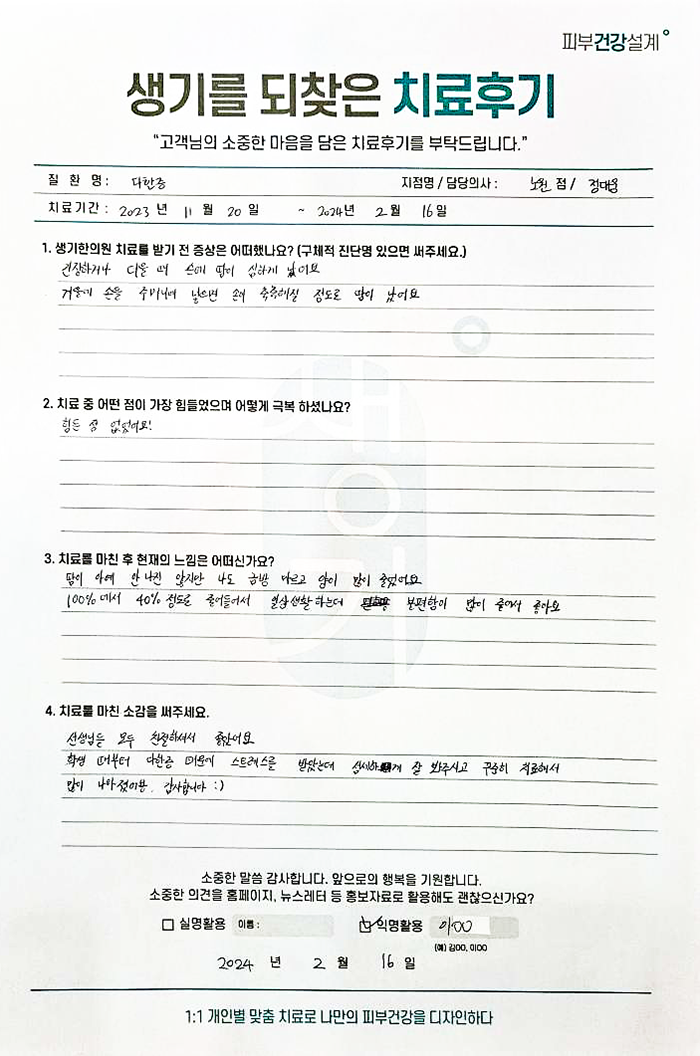 피부건강설계
생기를 되찾은 치료후기
“고객님의 소중한 마음을 담은 치료후기를 부탁드립니다.”
질 환 명 : 다한증 지점명 / 담당의사 : 노원 점 / 정대웅
치료기간 : 2023 년 11 월 20 일 ~ 2024년 2월 16일
1. 생기한의원 치료를 받기 전 증상은 어떠했나요? (구체적 진단명 있으면 써주세요.)
긴장하거나 더울 때 손에 땀이 심하게 났어요
겨울에 손을 주머니에 넣으면 손이 축축해질 정도로 땀이 났어요
2. 치료 중 어떤 점이 가장 힘들었으며 어떻게 극복 하셨나요?
힘든 점 없었어요!
3. 치료를 마친 후 현재의 느낌은 어떠신가요?
땀이 아예 안 나진 않지만 나도 금방 마르고 양이 많이 줄었어요
100%에서 40% 정도로 줄어들어서 일상생활 하는데 불편함이 많이 줄어서 좋아요
4. 치료를 마친 소감을 써주세요.
선생님들 모두 친절하셔서 좋았어요
학생 때부터 다한증 때문에 스트레스를 받았는데 섬세하게 잘 봐주시고 꾸준히 치료해서
많이 나아졌어용. 감사합니다 :)
소중한 말씀 감사합니다. 앞으로의 행복을 기원합니다.
소중한 의견을 홈페이지, 뉴스레터 등 홍보자료로 활용해도 괜찮으신가요?
실명활용 이름 : 익명활용 이OO
(예) 김OO, 이OO
2024 년 2 월 16 일
1:1 개인별 맞춤 치료로 나만의 피부건강을 디자인하다
생기